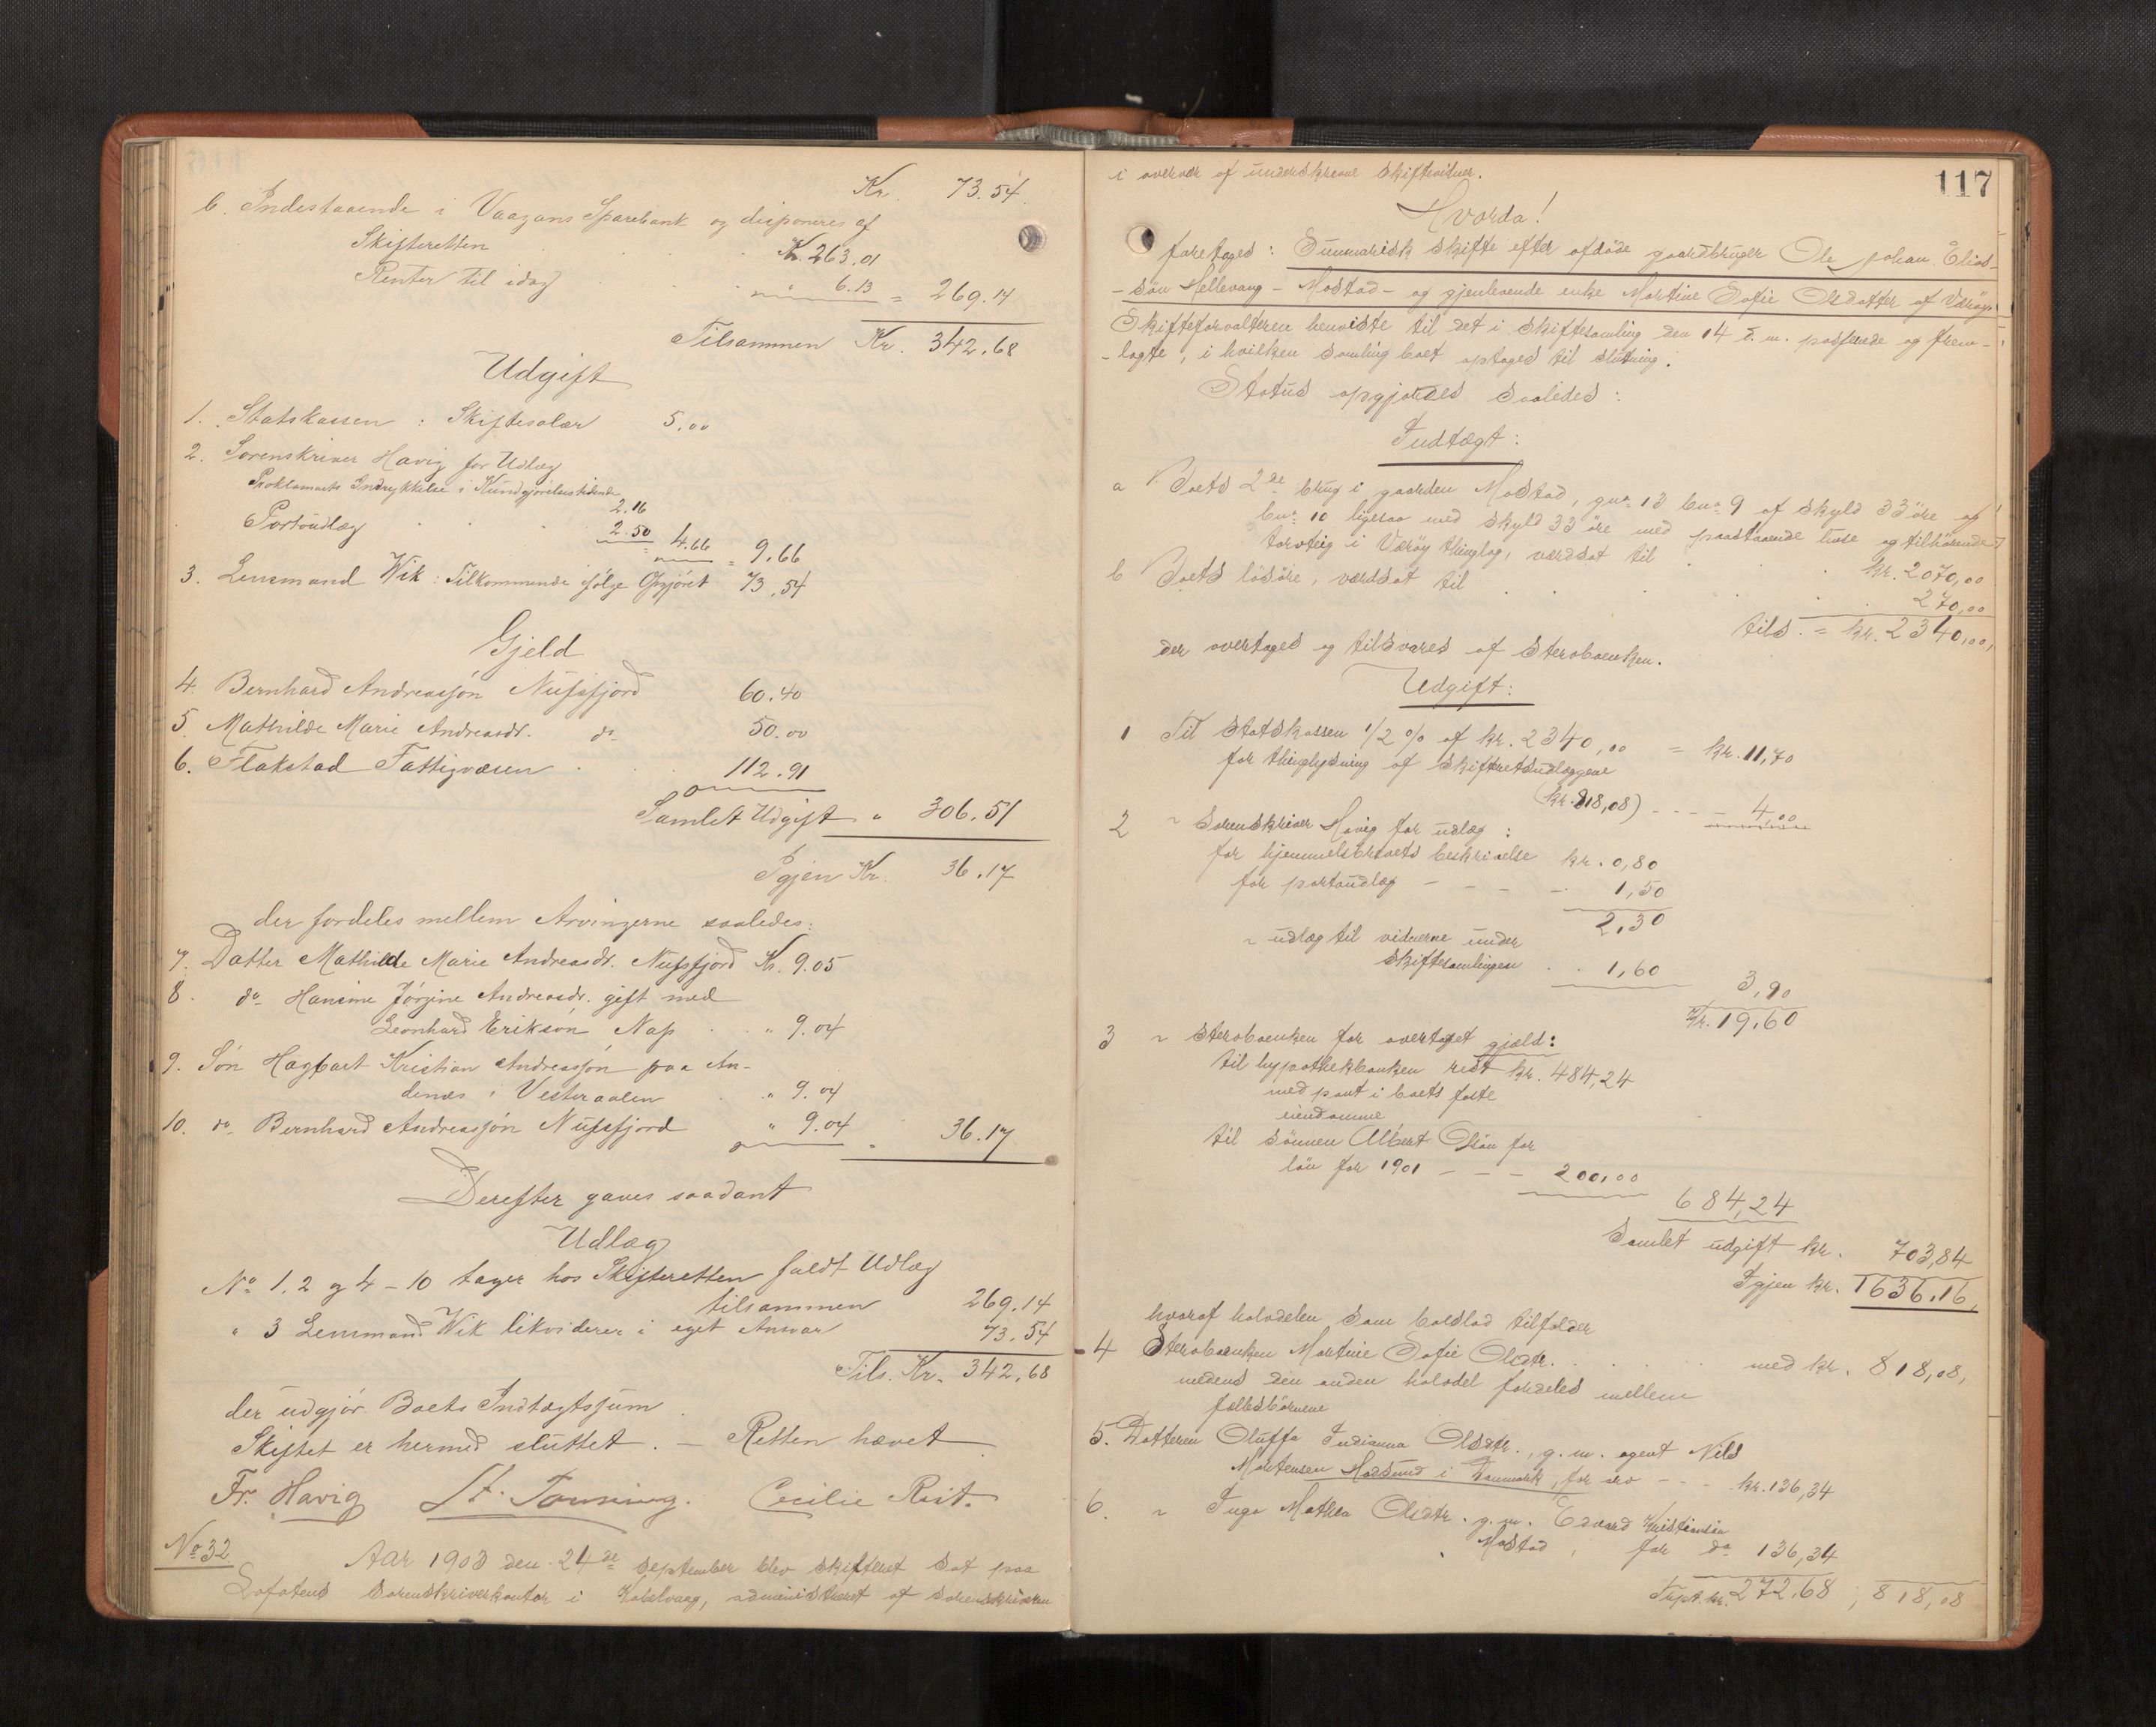 Kr. 73.54
b. Indestaaende i Vaagans Sparebank og disponeres af
Skifteretten Kr. 263.01
Renter til idag 6.13 = 269.14
Tilsammen Kr. 342.68
Udgift
1. Statskassen : Skiftesalær 5.00
2. Sorenskriver Havig for Udlæg
Proklamaets Indrykkelse i Kundgjörelsestidende
2.16
Portoudlæg 2.50 = 4.66 = 9.66
3. Lensmand Wik : Tilkommende ifölge Opgjöret 73.54
Gjeld
4. Bernhard Andreassön Nufsfjord 60.40
5. Mathilde Marie Andreasdr. do. 50.00
6. Flakstad Fattigvæsen 112.91
Samlet Udgift " 306.51
Igjen Kr. 36.17
der fordeles mellem Arvingerne saaledes:
7. Datter Mathilde Marie Andreasdr. Nufsfjord Kr. 9.05
8. do. Hansine Jörgine Andreasdr. gift med
Leonhard Eriksön Nap " 9.04
9. Sön Hagbart Kristian Andreassön paa An-
denæs i Vesteraalen " 9.04
10. do. Bernhard Andreassön Nufsfjord " 9.04 = 36.17
Derefter gaves saadant
Udlæg
No 1, 2 og 4 – 10 tager hos Skifteretten fuldt Udlæg
tilsammen 269.14
" 3 Lensmand Wik likviderer i eget Ansvar 73.54
Tils. Kr. 342.68
der udgjör Boets Indtægtssum
Skiftet er hermed sluttet. – Retten hævet.
Fr. Havig Cecilie Rist.
No 32
Aar 1903 den 24de september blev skifteret sat paa
Lofotens sorenskriverkontor i Kabelvaag, administreret af sorenskriveren
117
i overvær af underskrevne skiftevidner.
Hvorda!
foretoges : Summarisk skifte efter afdöde gaardbruger Ole Johan Elias-
-sön Hellevang – Mostad – og gjenlevende enke Martine Sofie Olsdatter af Værøy.
Skifteforvalteren henviste til det i skiftesamling den 14 d. m. passerede og frem-
-lagte, i hvilken samling boet optoges til slutning.
Status opgjordes saaledes :
Indtægt :
a Boets 2de brug i gaarden Mostad, gno 13 bno 9 af skyld 33 öre og
bno 10 ligesaa med skyld 33 öre med paastaaende huse og tilhörende
torvteig i Værøy thinglag, værdsat til kr. 2070,00
b Boets lösöre, værdsat til 270,00
tils. = kr. 2340,00,
der overtages og tilsvares af sterboenken.
Udgift :
1 Til statskassen 1/2 % af kr. 2340,00 = kr. 11,70
for thinglysning af skifteretsudlæggene
(kr. 818,08) – – – 4,00
2 " Sorenskriver Havig for udlæg :
for hjemmelsbrevets beskrivelse kr. 0,80
for portoudlæg – – – 1,50
2,30
" udlæg til vidnerne under
skiftesamlingen 1,60 3,90
Kr. 19,60
3 " sterboenken for overtaget gjæld :
til hypothekbanken rest kr. 484,24
med pant i boets faste
eiendomme
til sönnen Albert Olsön for
lön for 1901 – – – 200,00
684,24
Samlet udgift kr. 703,84
Igjen kr. 1636,16,
hvoraf halvdelen som boeslod tilfalder
4 Sterboenken Martine Sofie Olsdtr. med kr. 818,08,
medens den anden halvdel fordeles mellem
fællesbörnene
5. Datteren Oluffa Indianna Olsdtr., g. m. agent Nils
Mortensen Hadsund i Danmark, for arv – – kr. 136,34
6. " Inga Mathea Olsdtr. g. m. Edvard Kristiansön
Mostad, for do 136,34
Trspt. kr. 272,68 ; 818,08